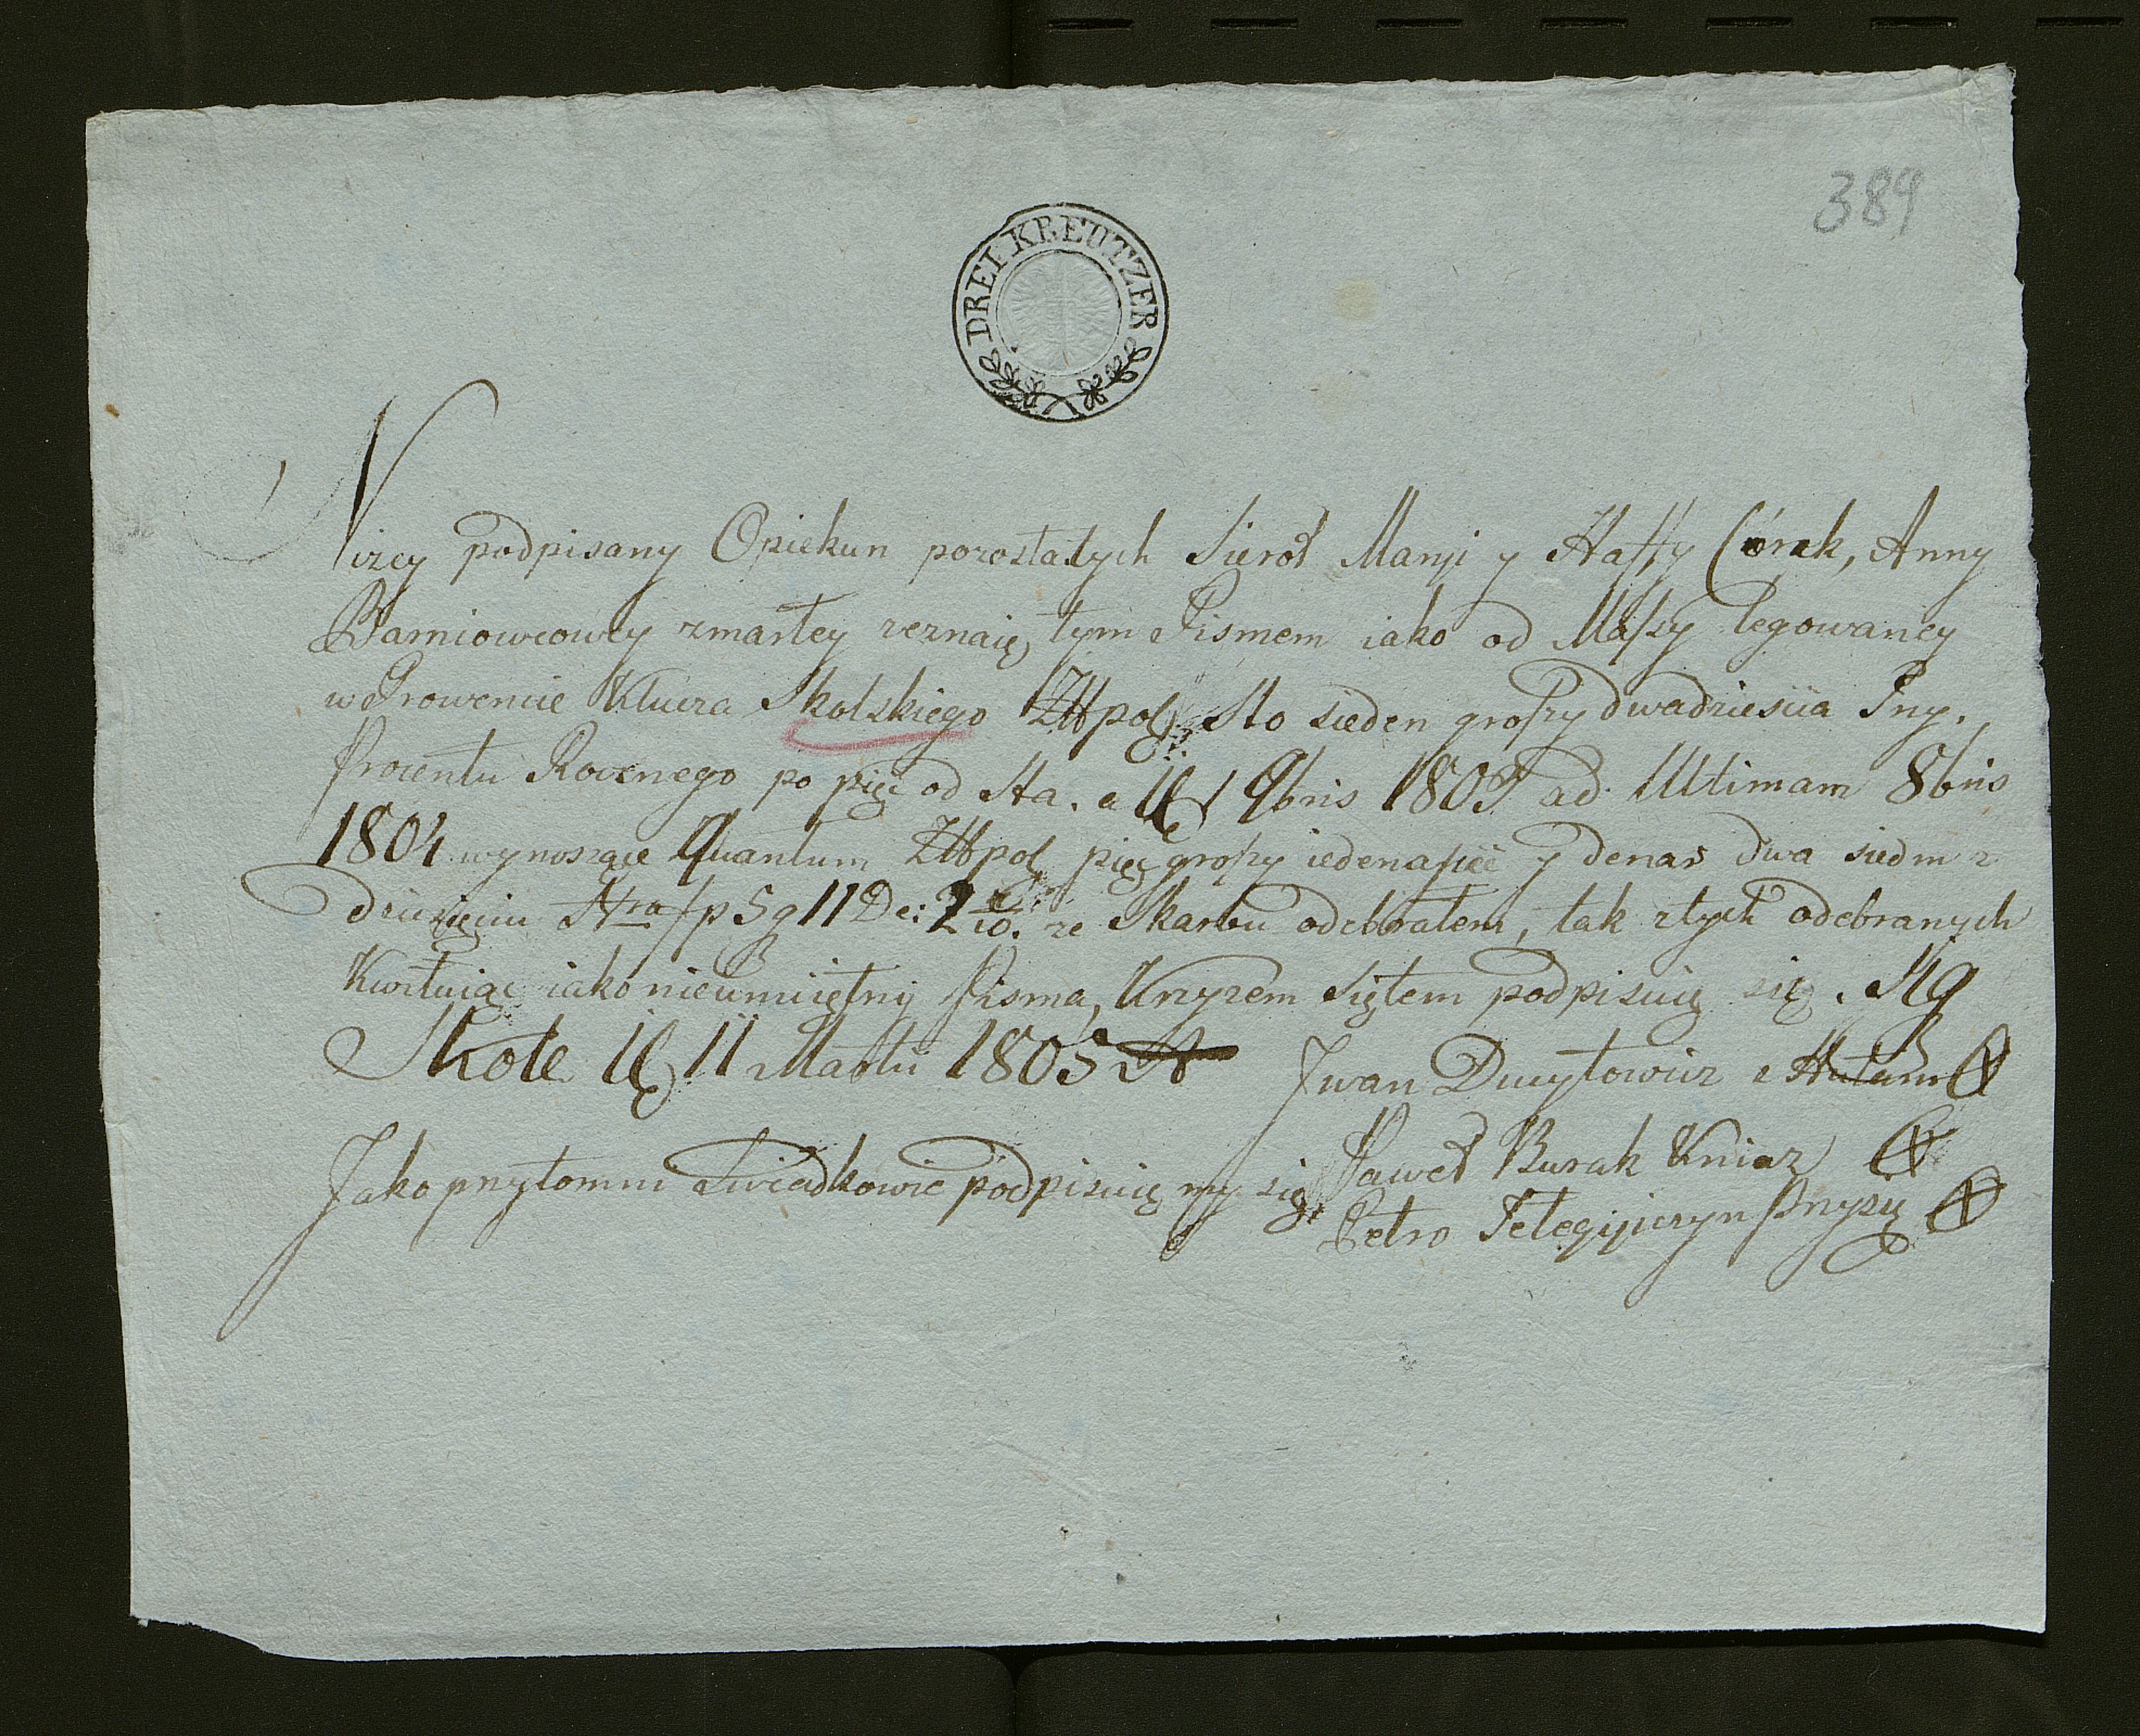 389
DREI KREUTZER
Niżey podpisany Opiekun pozostałych Sierot Maryi y Haſſy Córek, Anny
Barniowcowey zmarłey zeznaię, tym Pismem iako od Maſsy legowaney
w Prowencie Klucza Skolskiego Złłpol: Sto siedem groſzy dwadzieścia Pny.
Procentu Rocznego po pięć od Sta. a 1 9bris 1803 ad Ultimam 8bris
1804 wynoszące Quantum Złłpol pięć groſzy iedenaſcie y denar dwa siedm z
dziesięciu Nro fp 5 g 11 De: 2 7/10. ze Skarbu odebrałem, tak z tych odebranych
Kwituiąc iako nieumiiętny Pisma, Krzyżem Siętem podpisuię się. Sig
Skole 11 Martii 1805
Iwan Ducytowicz z
Jako przytomni Swiadkowie podpisuię my się Paweł Burak Kniaz
Petro Telegijiczyn Przysię